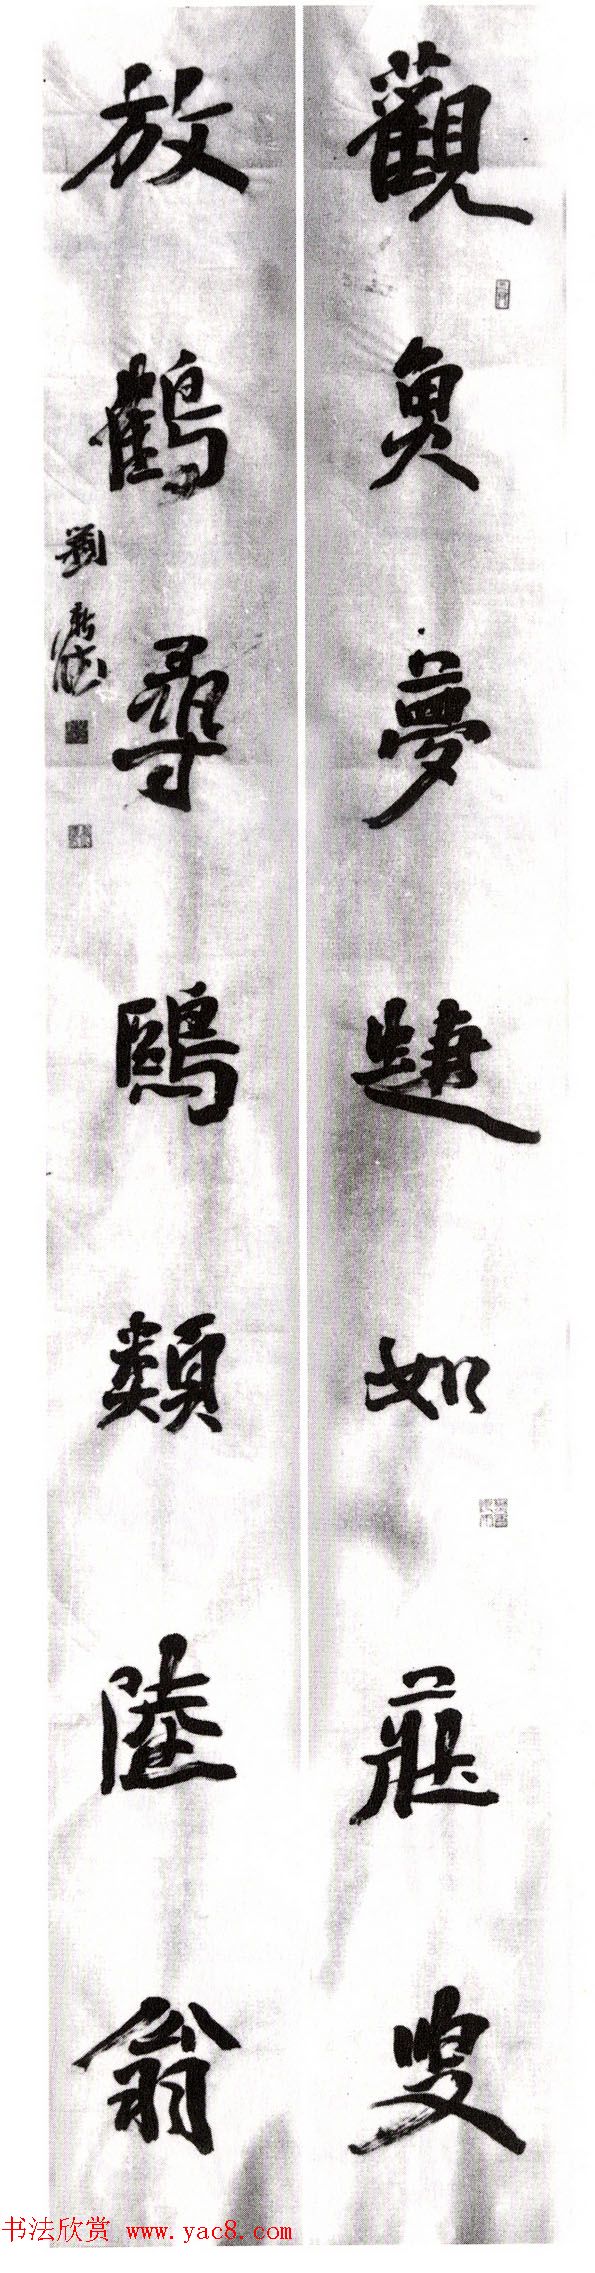 觀魚夢蜨如莊叟
放鶴尋鷗類陸翁
劉新德
书法欣赏 www.yac8.com